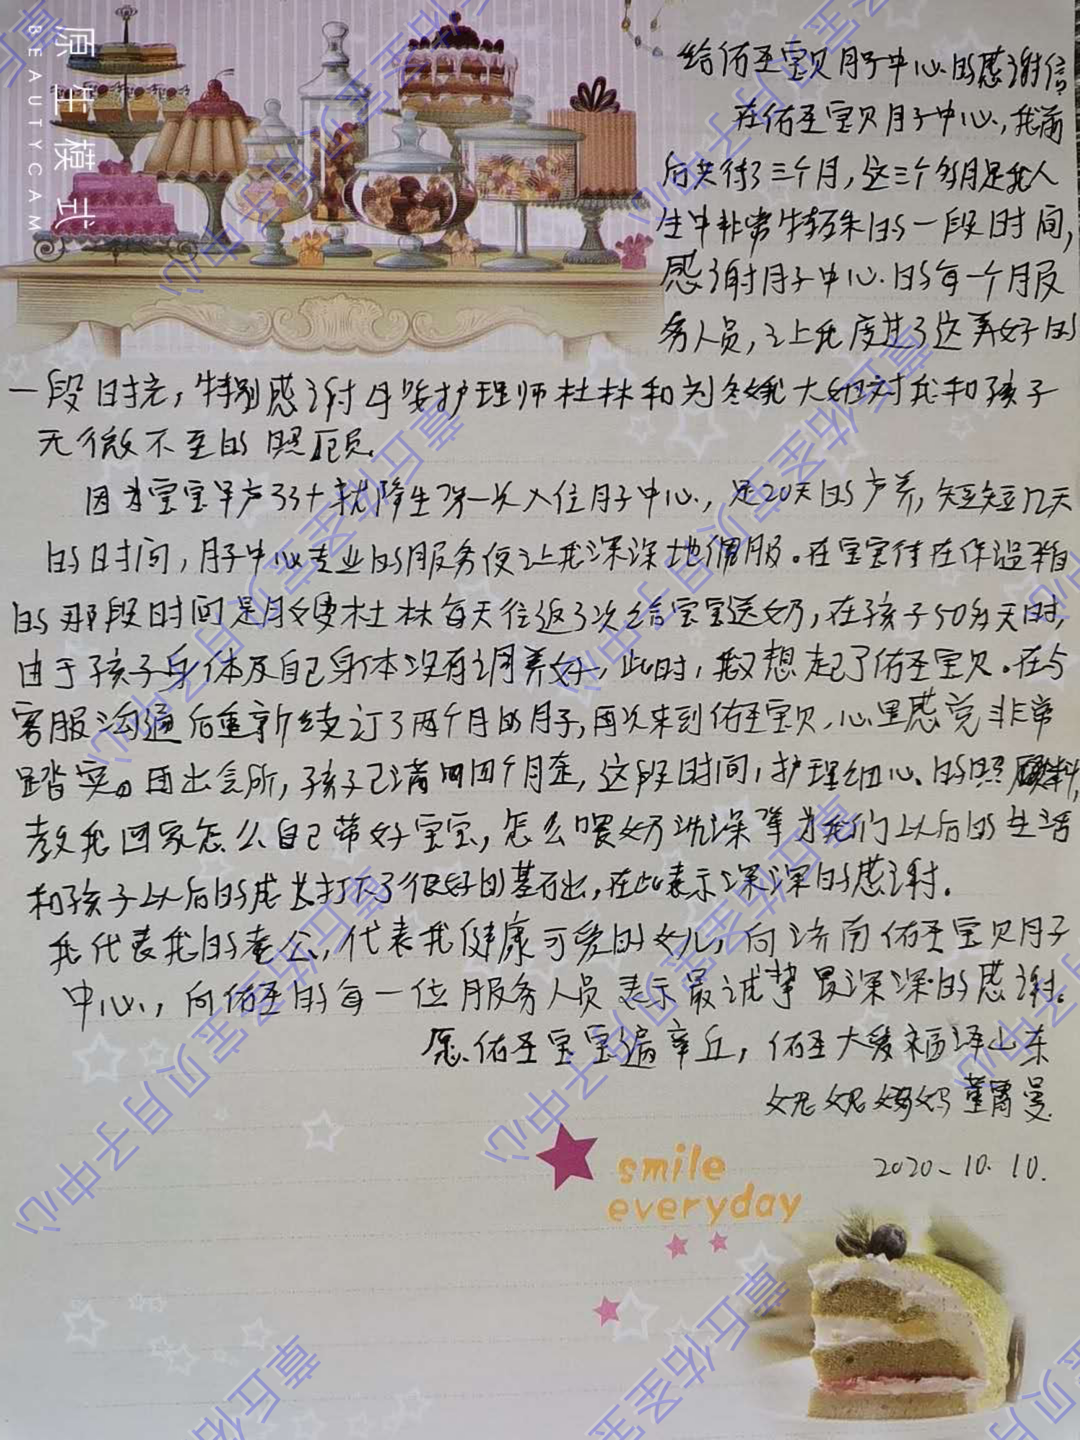 原生模式
BEAUTYCAM
给佑圣宝贝月子中心的感谢信
在佑圣宝贝月子中心,我前
后共待了三个月,这三个多月是我人
生中非常特殊的一段时间,
感谢月子中心的每一个月服
务人员,让我度过了这美好的
一段时光,特别感谢母婴护理师杜林和刘冬娥大姐对我和孩子
无微不至的照顾。
因为宝宝早产33+就降生第一次入住月子中心,是20天的产养,短短几天
的时间,月子中心专业的服务便让我深深地佩服。在宝宝住在保温箱
的那段时间是月嫂杜林每天往返3次给宝宝送奶,在孩子50多天时,
由于孩子身体及自己身体没有调养好,此时,我又想起了佑圣宝贝。在与
客服沟通后重新续订了两个月的月子,再次来到佑圣宝贝,心里感觉非常
踏实。再出会所,孩子已满四个月在,这段时间,护理细心的照
教我回家怎么自己带好宝宝,怎么喂奶洗澡等为我们以后的生活
和孩子以后的成长打下了很好的基石出,在此表示深深的感谢.
我代表我的老公,代表我健康可爱的女儿,向济南佑圣宝贝月子
中心,向佑圣的每一位月服务人员表示最诚挚最深深的感谢。
愿佑圣宝宝遍章丘,佑圣大爱福泽山东
妮妮妈妈董霄曼
2020-10.10.
smile
everyday
章丘佑圣宝贝月子中心